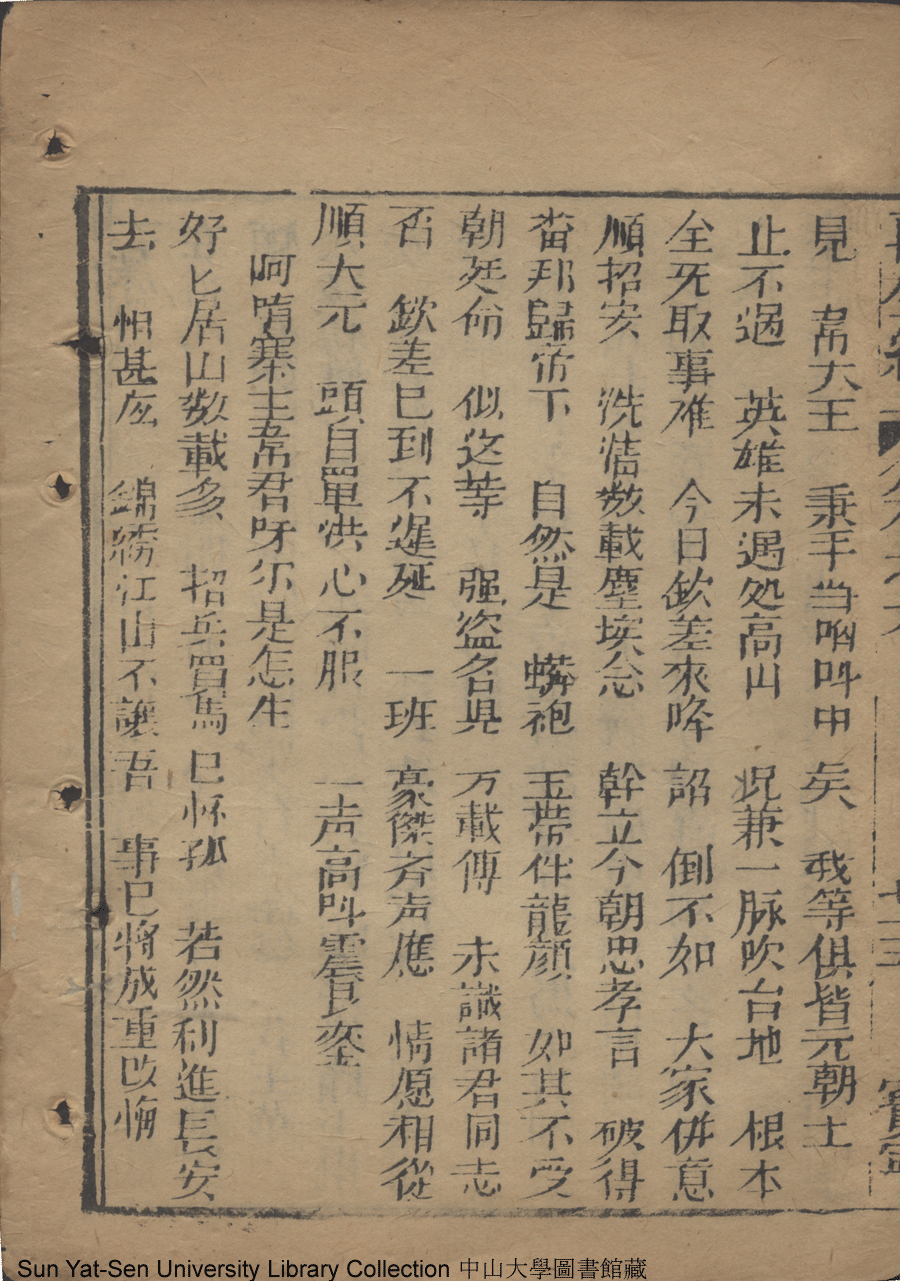 見　韋大王　秉手当咽呌中　矣　我等俱皆元朝士
止不過　英雄未遇処高山　况兼一脉吹台地　根本
全牙取事难　今日欽差來降　詔　倒不如　大家併意
順招安　洗洁数載塵埃念　幹立今朝忠孝言　破得
畨邦歸帝下　自然是　蟒袍　玉帶伴龍顔　如其不受
朝廷命　似这等　强盗名児　万載傳　未識諸君同志
否　欽差已到不遲延　一班　豪傑斉声應　情愿相從
順大元　頭目單洪心不服　一声高呌震良鋻
呵唷寨主韋君呀尔是怎生
好匕居山数載多　招兵買馬　已怀孤　若然利進長安
去　怕甚広　錦綉江山不讓吾　事已將成重改悔
七五
Sun Yat-Sen University Library Collection 中山大學圖書館藏